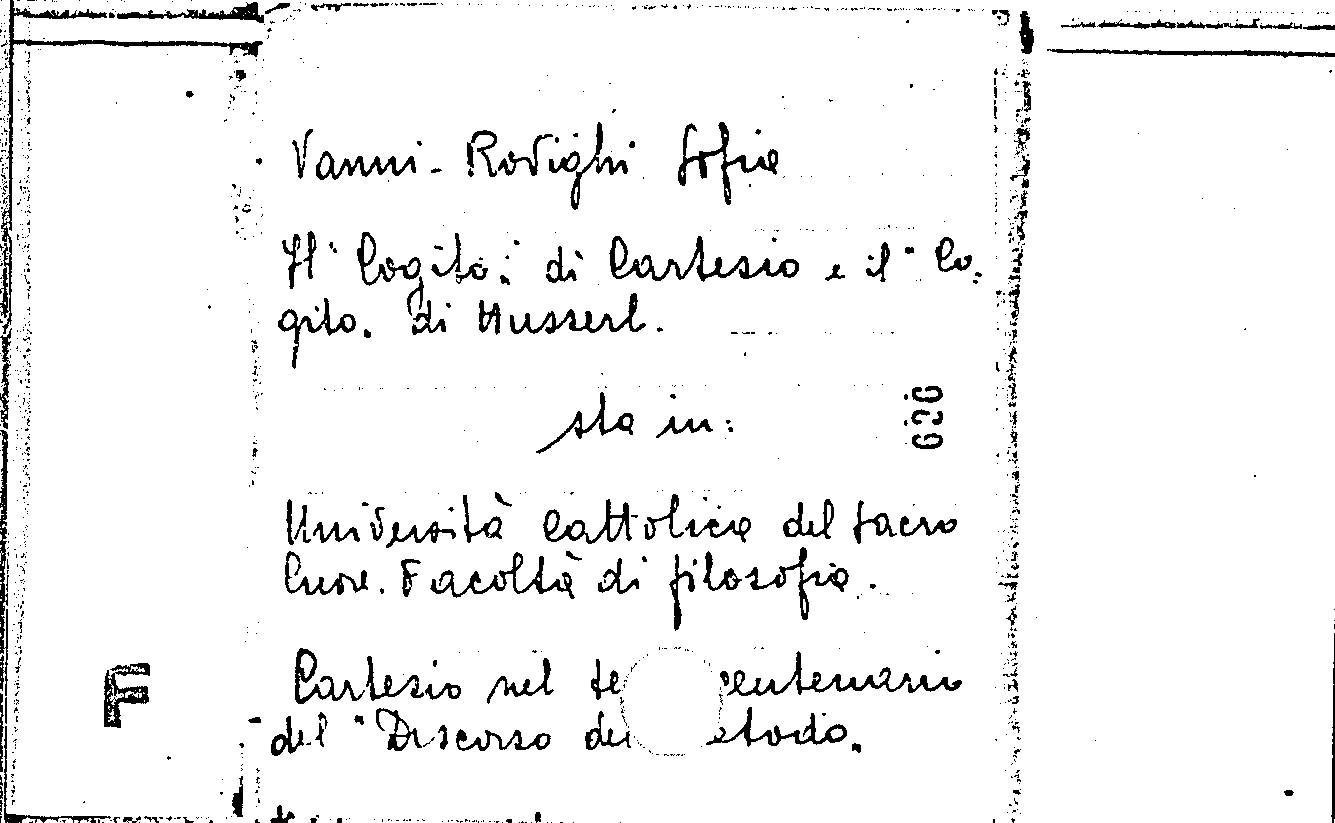 Vanni-Rovighi Sofia
Il "Cogito" di Cartesio e il "Co-
gito" di Husserl.
sta in:
626
Università Cattolica del Sacro
Cuore. Facoltà di filosofia.
F
Cartesio nel te centenario
del "Discorso del etodo.